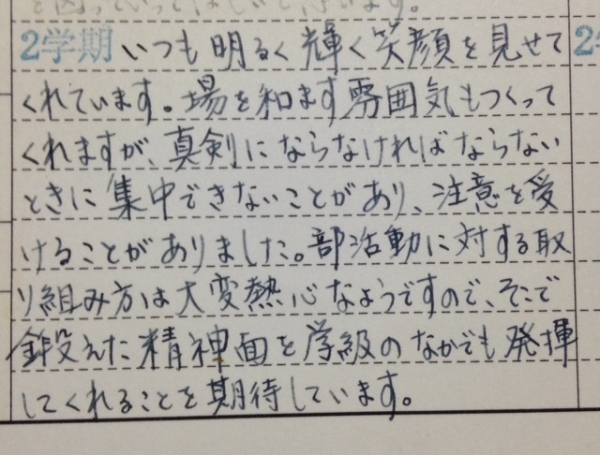 2学期 いつも明るく輝く笑顔を見せて
くれています。場を和ます雰囲気もつくって
くれますが、真剣にならなければならない
ときに集中できないことがあり、注意を受
けることがありました。部活動に対する取
り組み方は大変熱心なようですので、そこで
鍛えた精神面を学級のなかでも発揮
してくれることを期待しています。